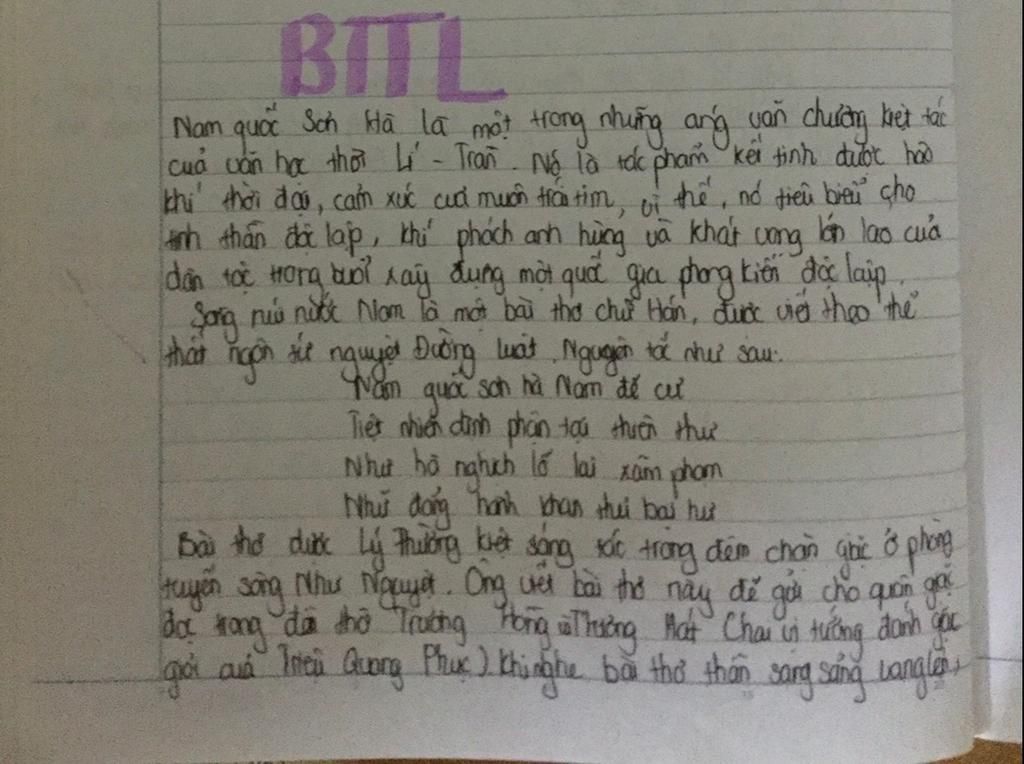 BTTL
Nam quốc Sơn Hà là một trong những áng văn chương kiệt tác
của văn học thời Lí - Trần. Nó là tác phẩm kết tinh được hào
khí thời đại, cảm xúc của muôn trái tim, vì thế, nó tiêu biểu cho
tinh thần độc lập, khí phách anh hùng và khát vọng lớn lao của
dân tộc trong buổi xây dựng một quốc gia phong kiến độc lập.
Song núi nước Nam là một bài thơ chữ Hán, được viết theo thể
thất ngôn tứ nguyệt Đường luật. Nguyên tác như sau:
Nam quốc sơn hà Nam đế cư
Tiệt nhiên định phận tại thiên thư
Như hà nghịch lỗ lai xâm phạm
Nhữ đẳng hành khan thủ bại hư
Bài thơ được Lý Thường Kiệt sáng tác trong đêm chặn giặc ở phòng
tuyến sông Như Nguyệt. Ông viết bài thơ này để gửi cho quân giặc
đọc trong đền thờ Trương Hống và Trương Hát (hai vị tướng đánh giặc
giỏi của Triệu Quang Phục). Khi nghe bài thơ thần sang sảng vang lên,